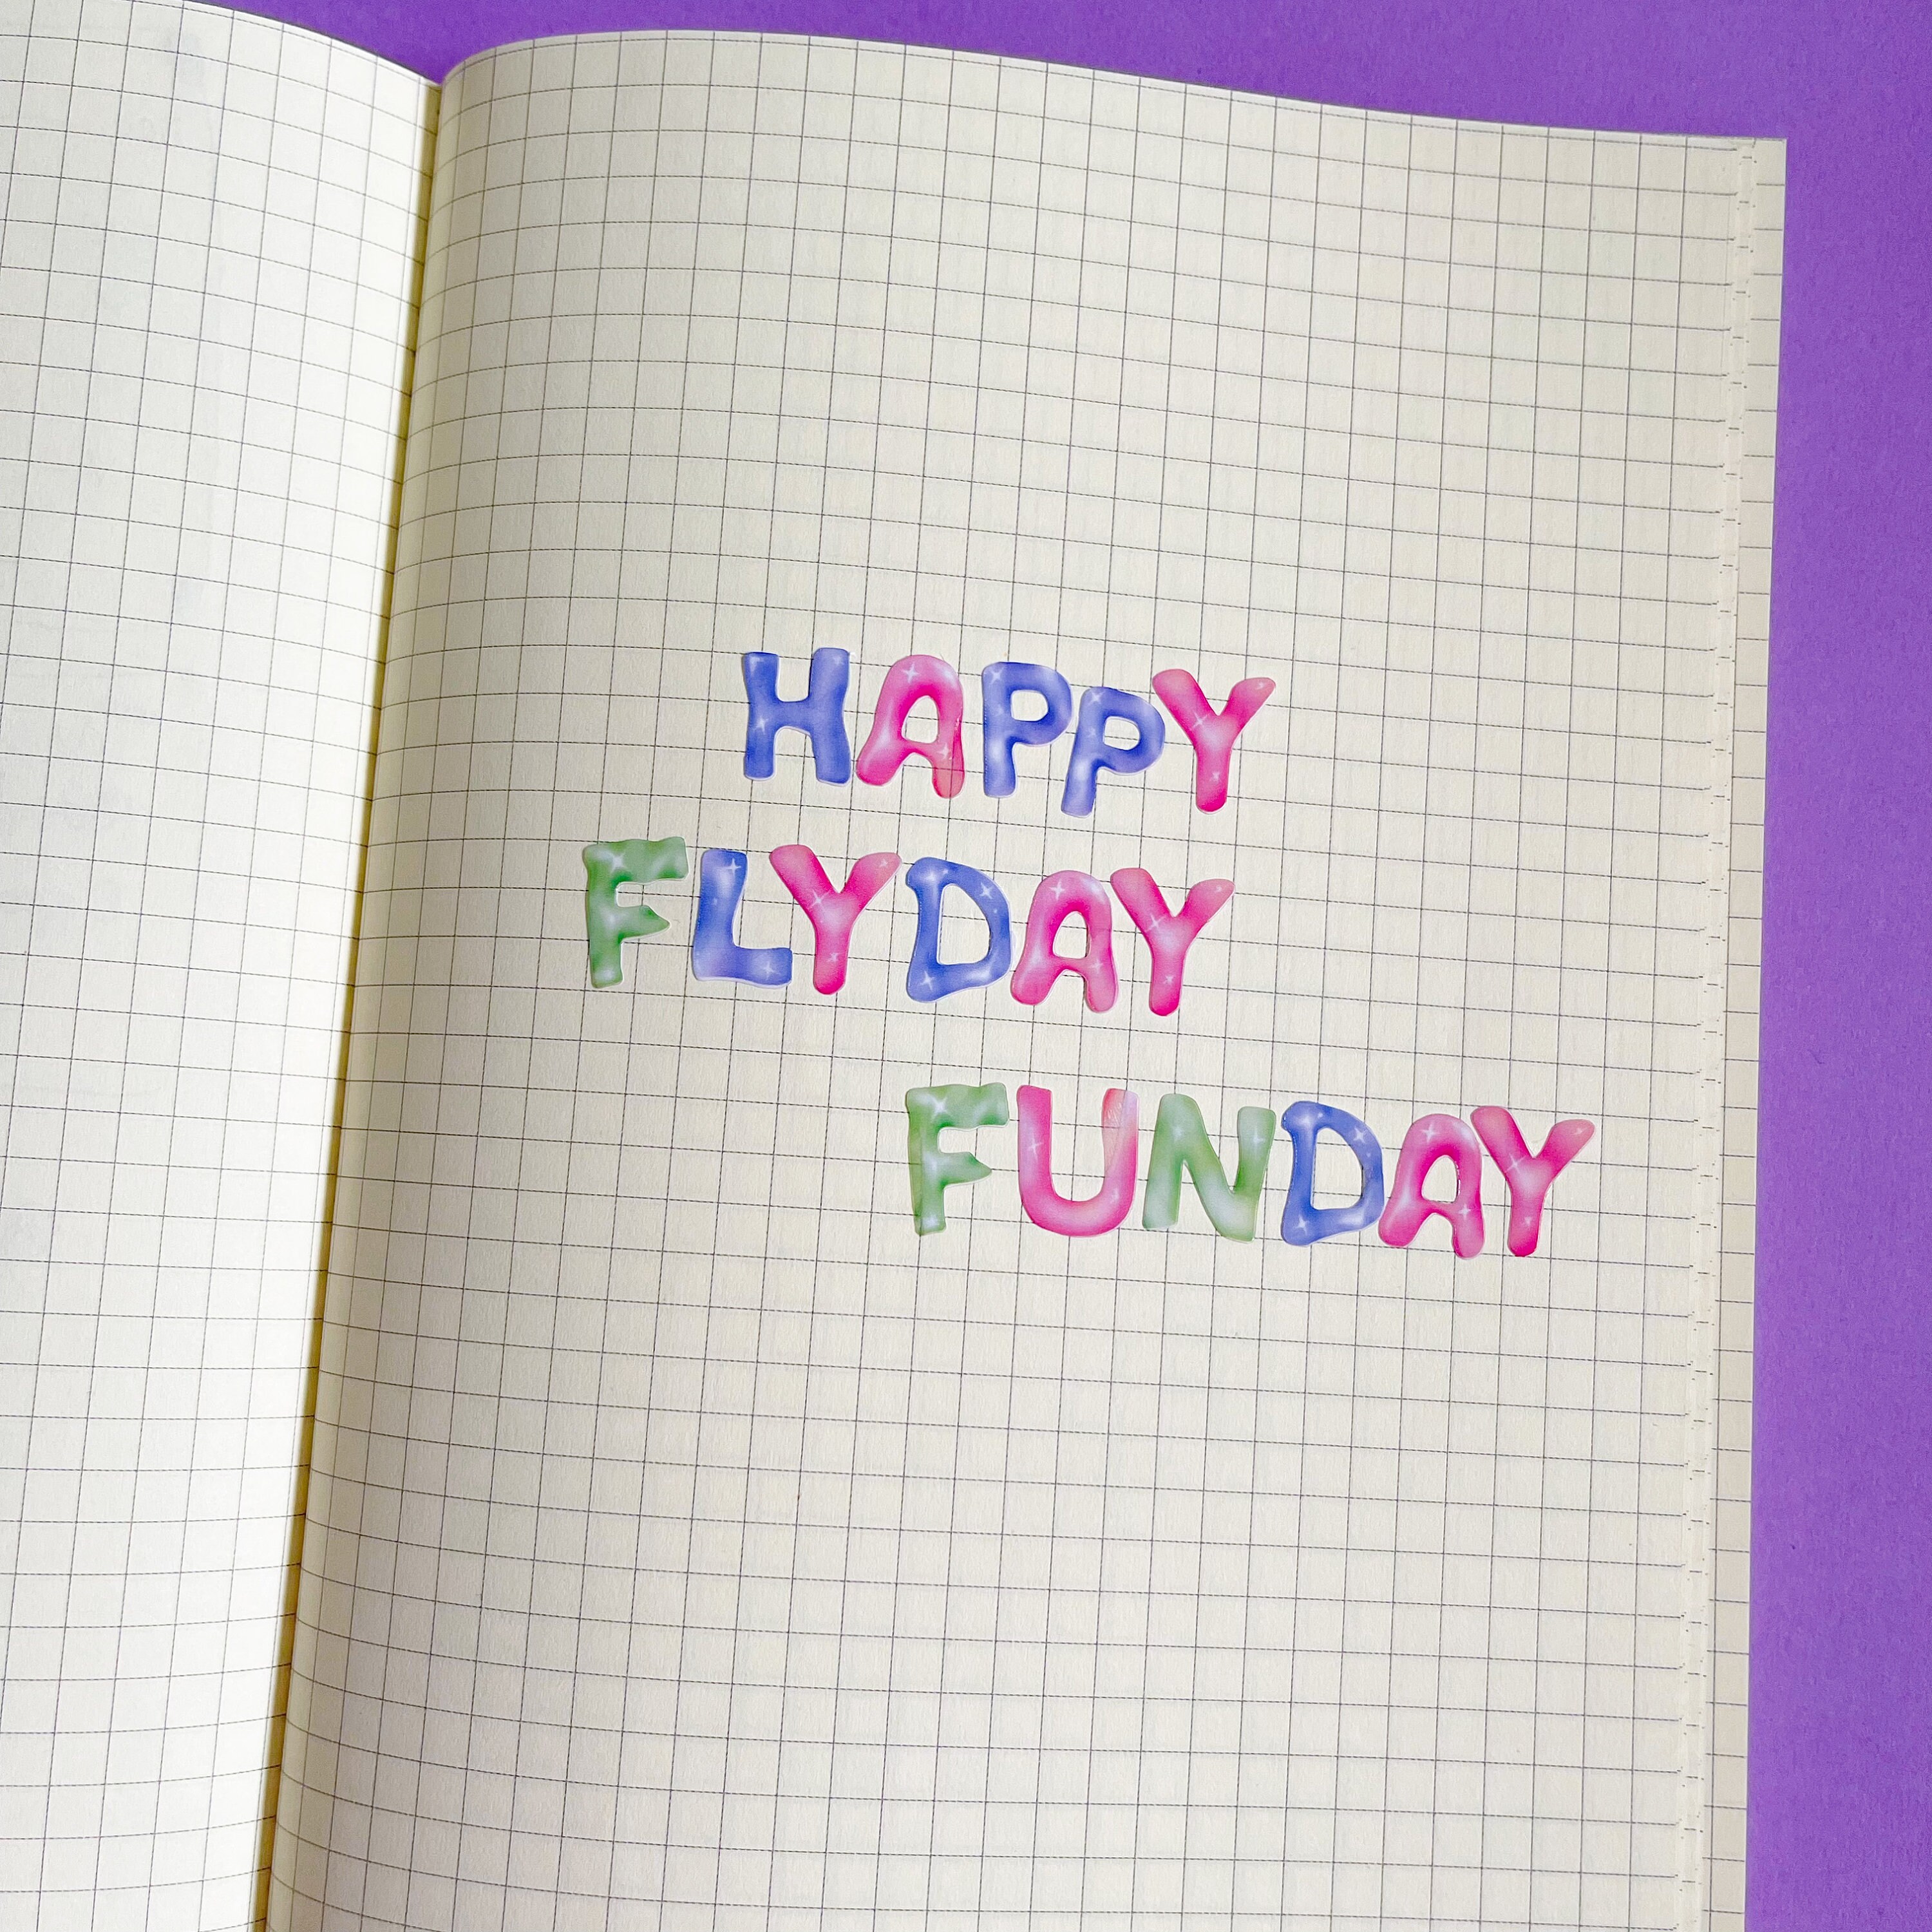 HAPPY
FLYDAY
FUNDAY